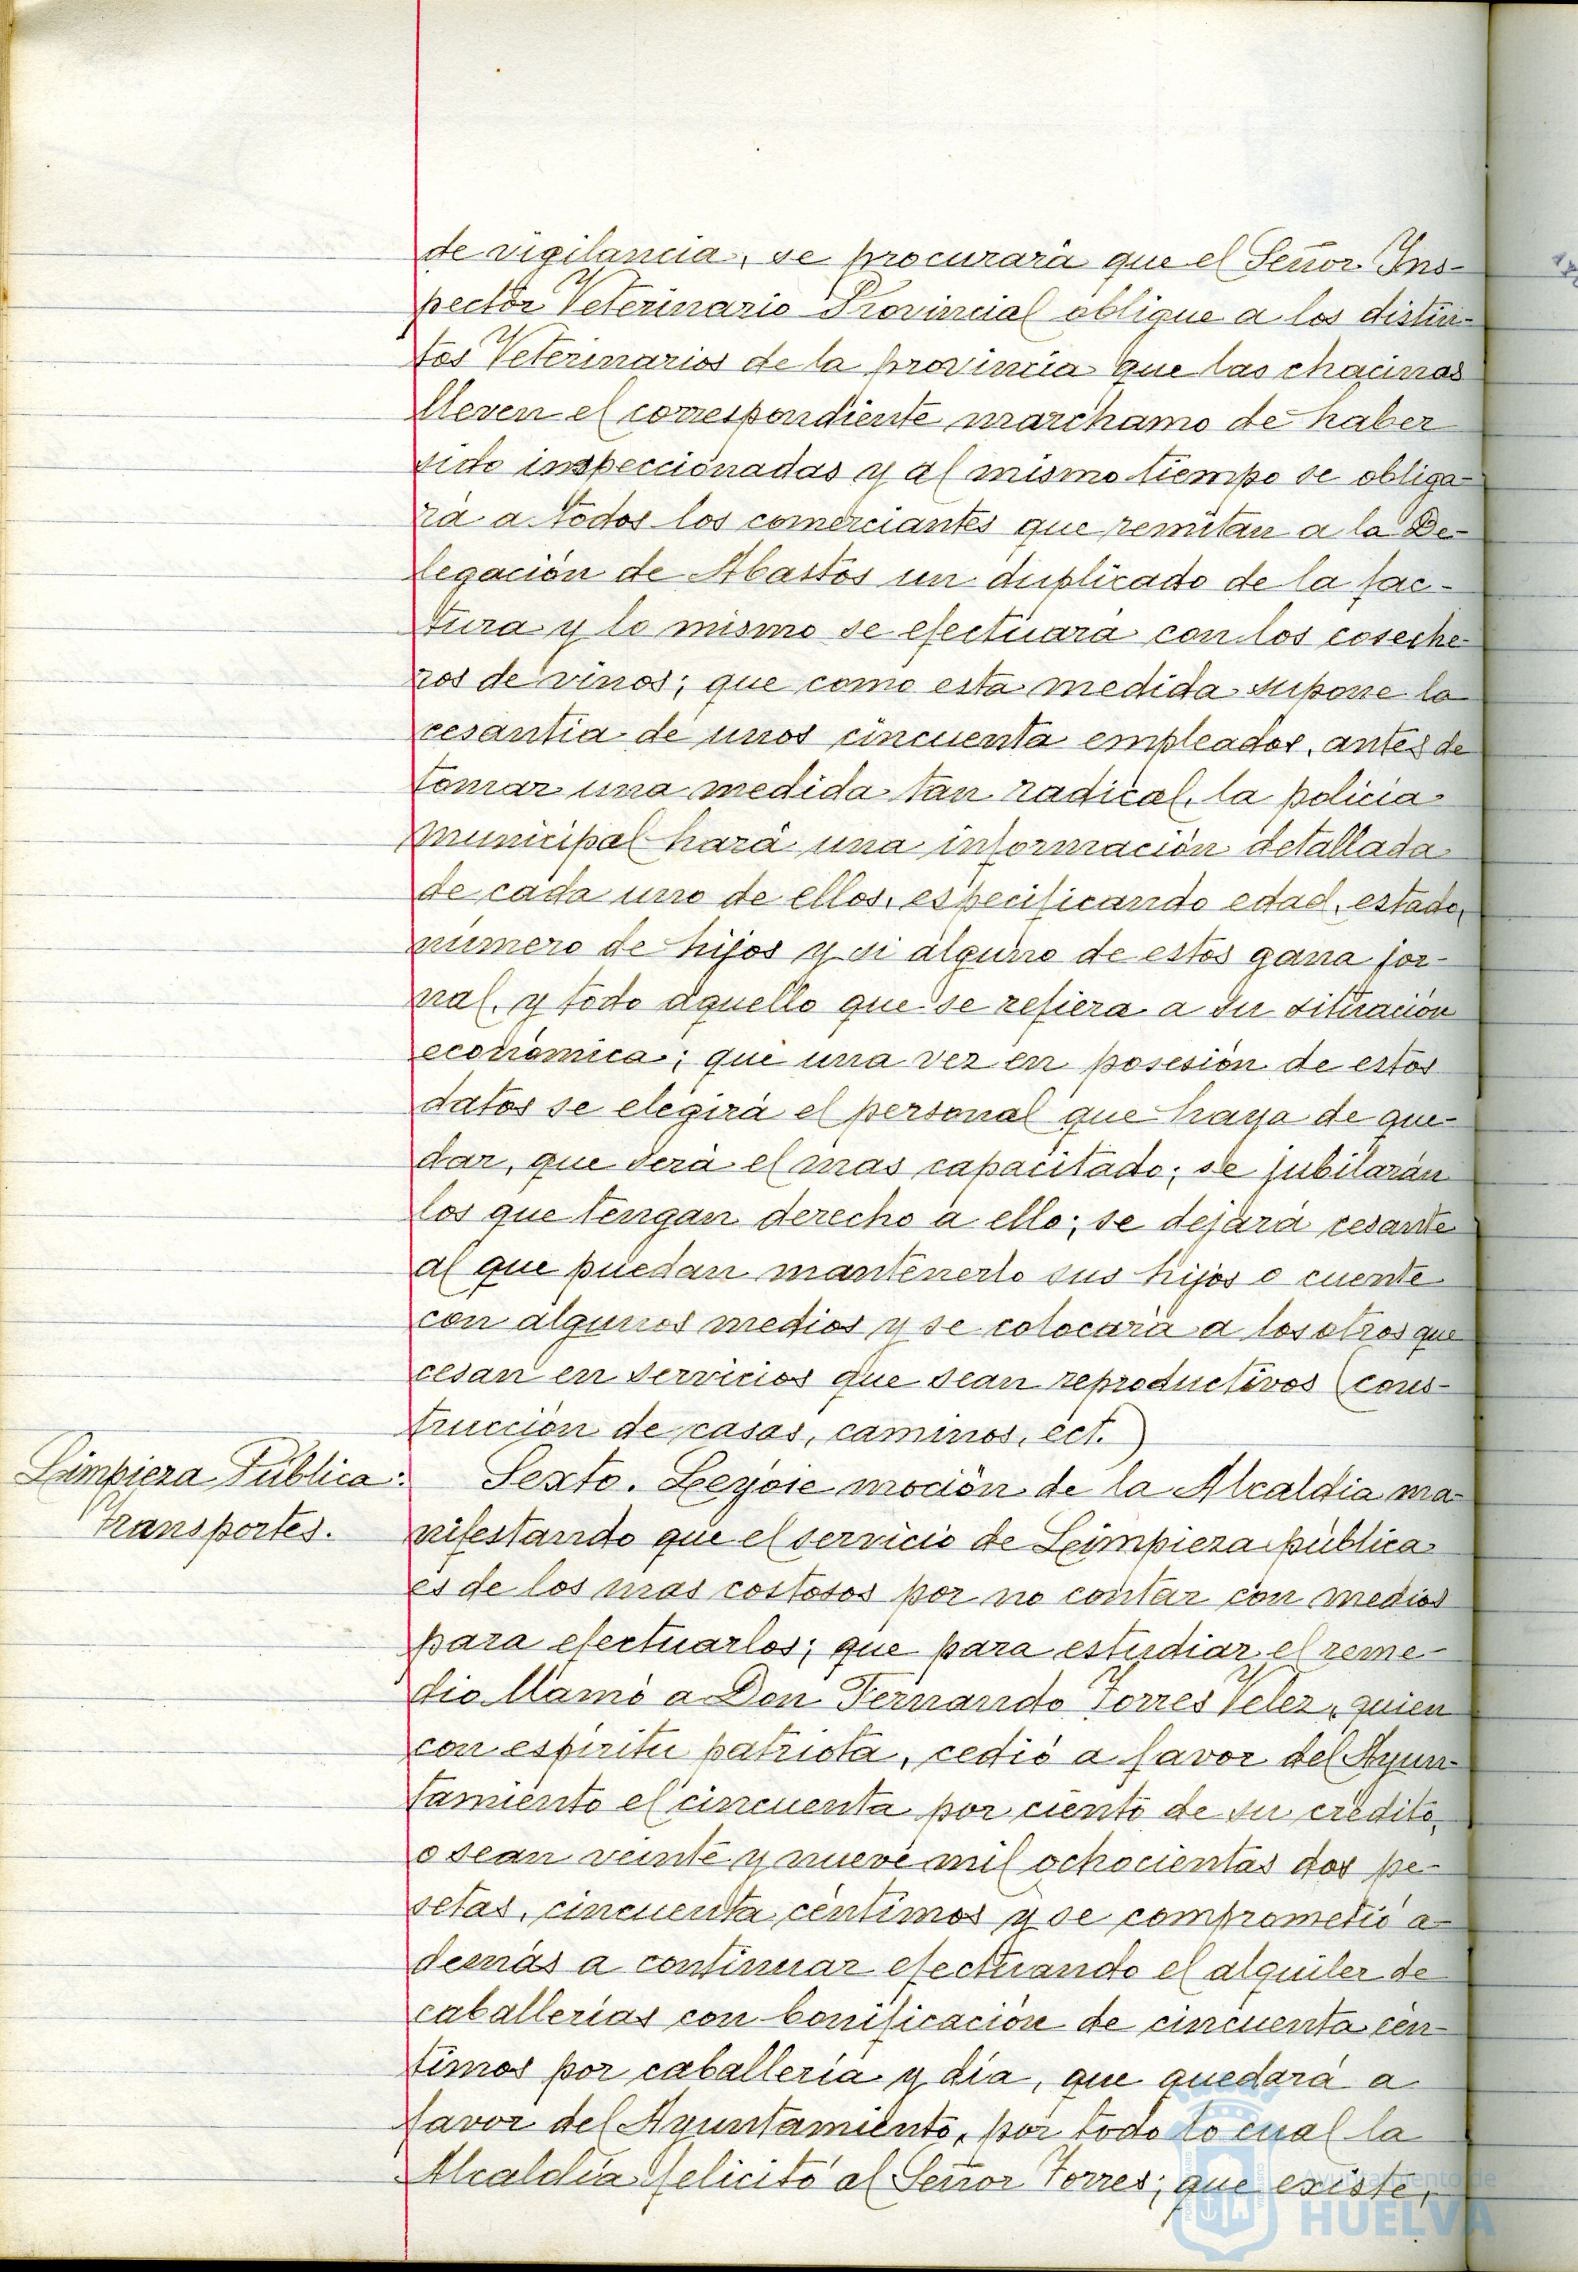 de vigilancia, se procurará que el Señor Ins-
pector Veterinario Provincial obligue a los distin-
tos Veterinarios de la provincia que las chacinas
lleven el correspondiente marchamo de haber
sido inspeccionadas y al mismo tiempo se obliga-
rá a todos los comerciantes que remitan a la De-
legación de Abastos un duplicado de la fac-
tura y lo mismo se efectuará con los coseche-
ros de vinos; que como esta medida supone la
cesantia de unos cincuenta empleados, antes de
tomar una medida tan radical, la policia
municipal hará una información detallada
de cada uno de ellos, especificando edad, estado,
número de hijos y si alguno de estos gana jor-
nal, y todo aquello que se refiera a su situación
económica; que una vez en posesión de estos
datos se elegirá el personal que haya de que-
dar, que será el mas capacitado; se jubilarán
los que tengan derecho a ello; se dejará cesante
al que puedan mantenerlo sus hijos o cuente
con algunos medios y se colocará a los otros que
cesan en servicios que sean reproductivos (cons-
trucción de casas, caminos, ect.)
Limpieza Pública:
Transportes.
Sexto. Leyóse moción de la Alcaldia ma-
nifestando que el servicio de Limpieza pública
es de los mas costosos por no contar con medios
para efectuarlos; que para estudiar el reme-
dio llamó a Don Fernando Torres Velez, quien
con espiritu patriota, cedió a favor del Ayun-
tamiento el cincuenta por ciento de su crédito,
o sean veinte y nueve mil ochocientas dos pe-
setas, cincuenta céntimos y se comprometió a-
demás a continuar efectuando el alquiler de
caballerías con bonificación de cincuenta cén-
timos por caballería y día, que quedará a
favor del Ayuntamiento, por todo lo cual la
Alcaldía felicitó al Señor Torres; que existe,
Ayuntamiento de
HUELVA